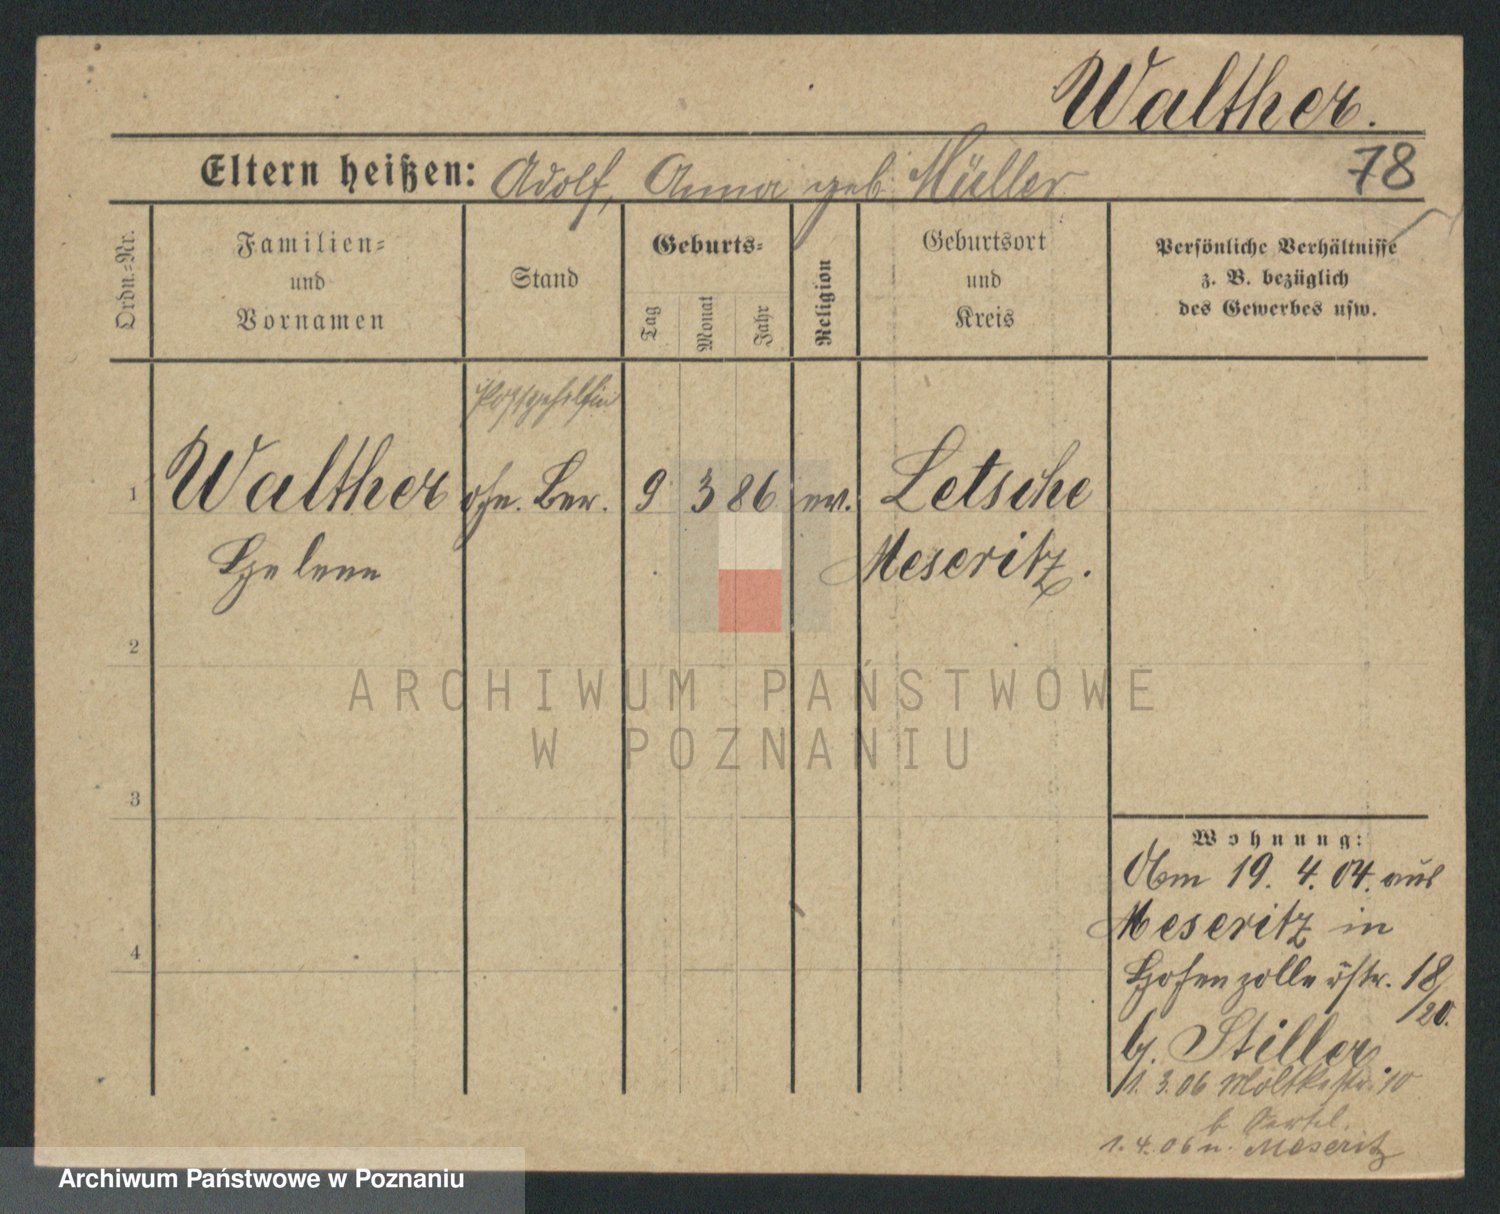 Walther.
78
Eltern heißen: Adolf, Anna geb. Müller
Ordn.-Nr.
Familien-
und
Vornamen
Stand
Geburts-
Tag
Monat
Jahr
Religion
Geburtsort
und
Kreis
Persönliche Verhältnisse
z. B. bezüglich
des Gewerbes usw.
Postgehilfin
1 Walther ohn. Ber. 9 3 86 ev. Letsche
Helene Meseritz.
2
3
4
ARCHIWUM PAŃSTWOWE
W POZNANIU
Wohnung:
Am 19. 4. 04. aus
Meseritz in
Hohenzollernstr. 18/20.
b. Stiller.
1. 3. 06 Moltkestr. 10
b. Oertel.
1. 4. 06 n. Meseritz
Archiwum Państwowe w Poznaniu